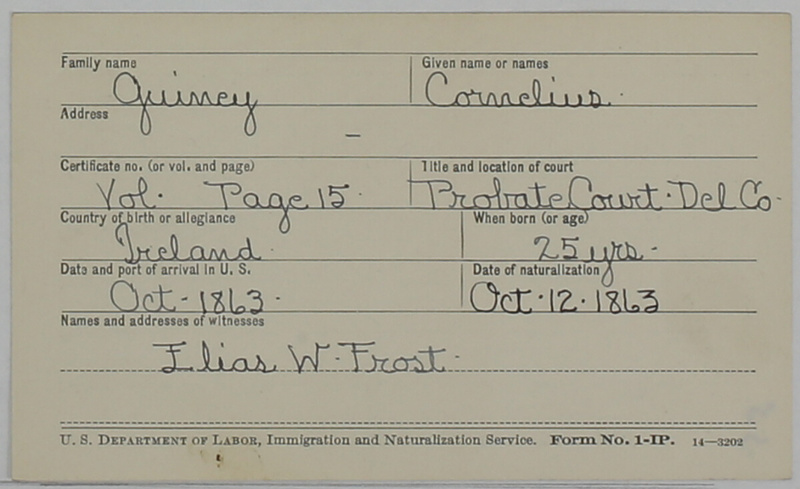 Family name Given name or names
Quiney Cornelius.
Address
—
Certificate no. (or vol. and page) Title and location of court
Vol. Page 15 Probate Court. Del Co.
Country of birth or allegiance When born (or age)
Ireland. 25 yrs.
Date and port of arrival in U. S. Date of naturalization
Oct - 1863. Oct. 12. 1863
Names and addresses of witnesses
Elias W. Frost.
U. S. Department of Labor, Immigration and Naturalization Service. Form No. 1-IP. 14—3202